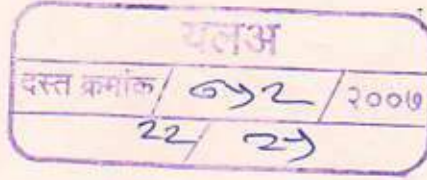 यलअ
दस्त क्रमांक / ७५२ / २००७
२२ / २५